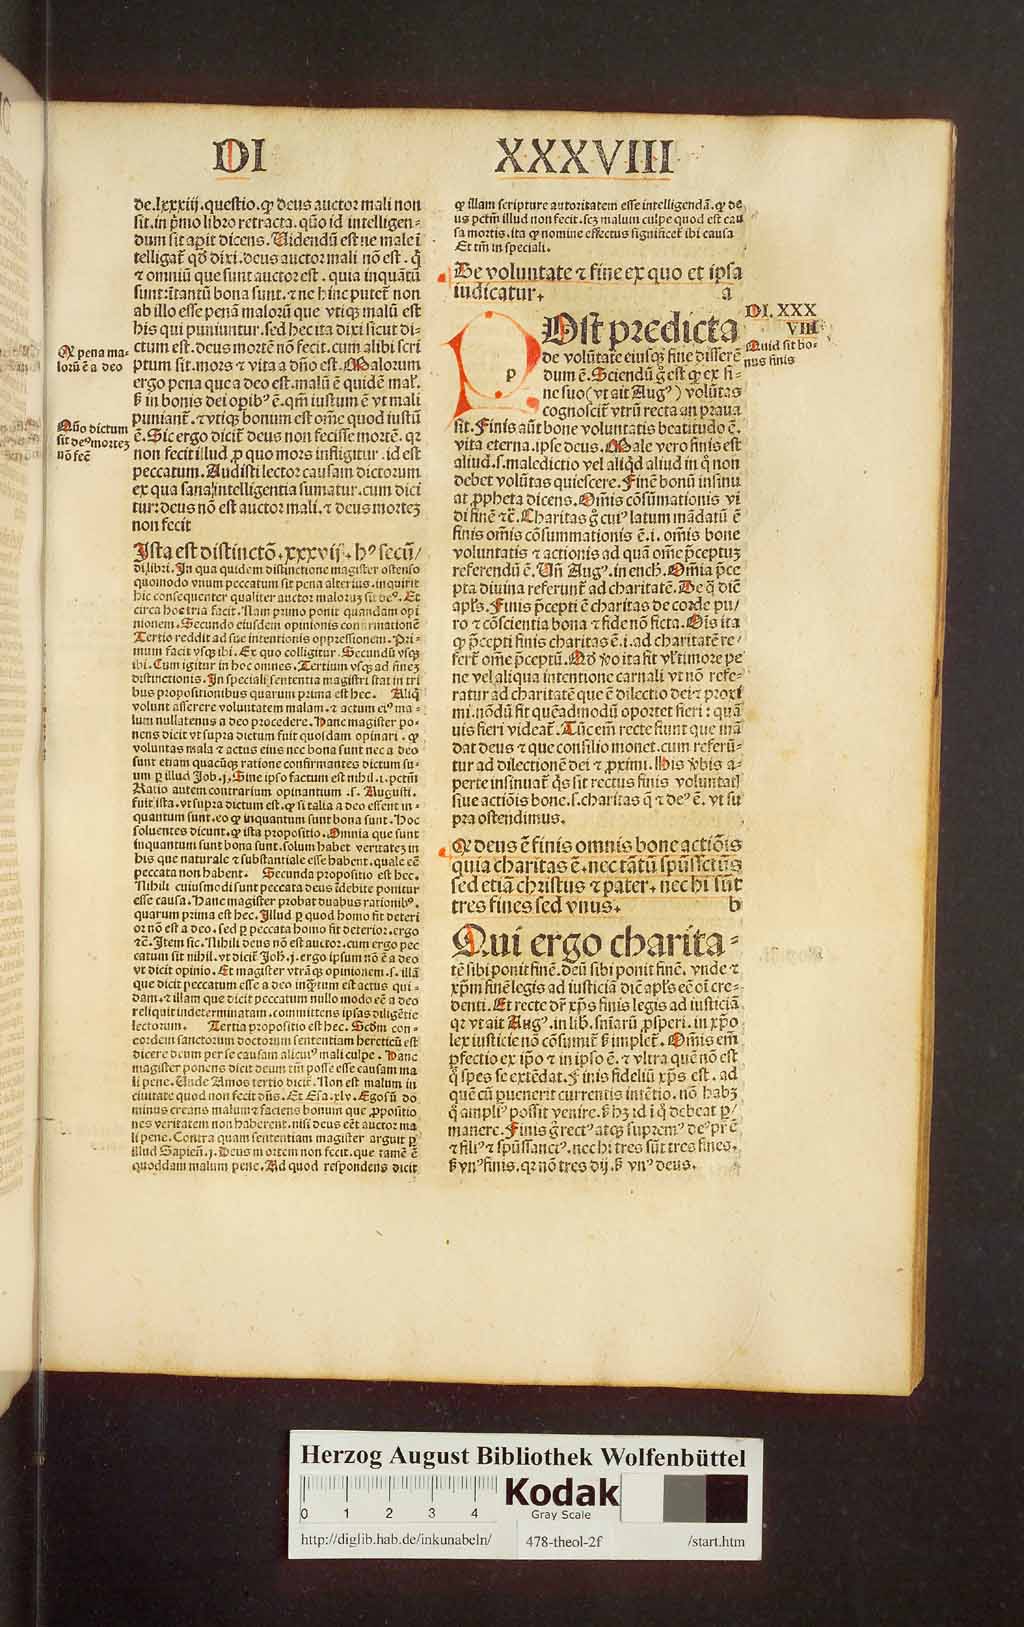 DI XXXVIII
de.lxxxiij.questio.ꝙ deus auctor mali non
sit.in p̄mo libro retracta.quō id intelligen-
dum sit aꝑit dicens.Videndū est ne male ī
telligat̄ qḋ dixi.deus auctor mali nō est.q̄
⁊ omniū que sunt auctor est.quia inquātū
sunt:ītantū bona sunt.⁊ ne hinc putet̄ non
ab illo esse penā malorū que vtiqꝫ malū est
his qui puniuntur.sed hec ita dixi sicut di-
ctum est.deus mortē nō fecit.cum alibi scri
ptum sit.mors ⁊ vita a dn̄o est.Malorum
ergo pena que a deo est.malū ē quidē mal'.
ꝫ in bonis dei opibꝰ ē.qm̄ iustum ē vt mali
puniant̄.⁊ vtiqꝫ bonum est om̄e quod iustū
ē.Sic ergo dicit̄ deus non fecisse mortē.qꝛ
non fecit illud ꝓ quo mors infligitur.id est
peccatum.Audisti lector causam dictorum
ex qua sana intelligentia sumatur.cum dici
tur:deus nō est auctor mali.⁊ deus morteꝫ
non fecit
Qꝙ pena ma-
lorū ē a deo
Quō dictum
sit deꝰ morteꝫ
nō fec̄
Ista est distinctō.xxxvij.hꝰ secū/
di.libri.In qua quidem distinctione magister ostenso
quomodo vnum peccatum sit pena alterius.inquirit
hic consequenter qualiter auctor maloruꝫ sit deꝰ.Et
circa hoc tria facit.Nam primo ponit quandam opi
nionem.Secundo eiusdem opinionis confirmationē
Tertio reddit ad sue intentionis oppressionem.Pri-
mum facit vsqꝫ ibi.Ex quo colligitur.Secundū vsqꝫ
ibi.Cum igitur in hoc omnes.Tertium vsqꝫ ad fineꝫ
distinctionis.In speciali sententia magistri stat in tri
bus propositionibus quarum prima est hec. Aliq̄
volunt asserere voluntatem malam.⁊ actum eiꝰ ma-
lum nullatenus a deo procedere.Hanc magister po-
nens dicit vt supra dictum fuit quosdam opinari.ꝙ
voluntas mala ⁊ actus eius nec bona sunt nec a deo
sunt etiam quacūqꝫ ratione confirmantes dictum su-
um ꝑ illud Job.j.Sine ipso factum est nihil.i.pctm̄
Ratio autem contrarium opinantum.s.Augusti.
fuit ista.vt supra dictum est.ꝙ si talia a deo essent in-
quantum sunt.eo ꝙ inquantum sunt bona sunt.Hoc
soluentes dicunt.ꝙ ista propositio.Omnia que sunt
inquantum sunt bona sunt.solum habet veritateꝫ in
his que naturale ⁊ substantiale esse habent.quale eē
peccata non habent. Secunda propositio est hec.
Nihili cuiusmodi sunt peccata deus īdebite ponitur
esse causa.Hanc magister probat duabus rationibꝰ.
quarum prima est hec.Illud ꝑ quod homo fit deteri
or nō est a deo.sed ꝑ peccata homo fit deterior.ergo
⁊c̄.Item sic.Nihili deus nō est auctor.cum ergo pec
catum sit nihil.vt dicit̄ Joh.j.ergo ipsum nō ē a deo
vt dicit opinio.Et magister vtrāqꝫ opinionem.s.illā
que dicit peccatum esse a deo inq̄tum est actus qui-
dam.⁊ illam que dicit peccatum nullo modo eē a deo
reliquit indeterminatam.committens ipsas diligētie
lectorum. Tertia propositio est hec.Scdm̄ con-
cordem sanctorum doctorum sententiam hereticū est
dicere deum per se causam alicuiꝰ mali culpe.Hanc
magister ponens dicit deum tm̄ posse esse causam ma
li pene.Unde Amos tertio dicit̄.Non est malum in
ciuitate quod non fecit dn̄s.Et Esa.xlv.Ego sū do
minus creans malum ⁊ faciens bonum que ꝓpositio
nes veritatem non haberent.nisi deus eēt auctor ma
li pene.Contra quam sententiam magister arguit ꝑ
illud Sapien̄.j.Deus mortem non fecit.que tamē ē
quoddam malum pene.Ad quod respondens dicit
ꝙ illam scripture autoritatem esse intelligendā.ꝙ de
us pctm̄ illud non fecit.scꝫ malum culpe quod est cau
sa mortis.ita ꝙ nomine effectus significet̄ ibi causa
Et tm̄ in speciali.
De voluntate ⁊ fine ex quo et ipsa
iudicatur. a
DI.XXX
VIII
Quid sit bo-
nus finis
p
Ost predicta
de volūtate eiusqꝫ fine disserē
dum ē.Sciendū g̊ est ꝙ ex fi-
ne suo(vt ait Augꝰ)volūtas
cognoscit̄ vtrū recta an praua
sit.Finis aūt bone voluntatis beatitudo ē.
vita eterna.ipse deus.Male vero finis est
aliud.s.maledictio vel aliq̇d aliud in q̇ non
debet volūtas quiescere.Finē bonū insinu
at ꝓpheta dicens.Om̄is cōsūmationis vi
di finē ⁊c̄.Charitas g̊ cuiꝰ latum mādatū ē
finis om̄is cōsummationis ē.i.omīs bone
voluntatis ⁊ actionis ad quā om̄e p̄ceptuꝫ
referendū ē.Un̄ Augꝰ.in ench.Om̄ia p̄ce
pta diuina referunt̄ ad charitatē.De q̇ dic̄
apl's.Finis p̄cepti ē charitas de corde pu/
ro ⁊ cōscientia bona ⁊ fide nō ficta.Oīs ita
ꝙ p̄cepti finis charitas ē.i.ad charitatē re/
fert̄ om̄e p̄ceptū.Qḋ v̊o ita fit vl' timore pe
ne vel aliqua intentione carnali vt nō refe-
ratur ad charitatē que ē dilectio dei ⁊ proxi
mi.nōdū fit quēadmodū oportet fieri:quā
uis fieri videat̄.Tūc em̄ recte fiunt que mā
dat deus ⁊ que consilio monet.cum referū-
tur ad dilectionē dei ⁊ ꝓximi.His v̊bis a-
perte insinuat̄ q̇s sit rectus finis voluntatis
siue actiōis bone.s.charitas q̄ ⁊ deꝰ ē.vt su
pra ostendimus.
Qꝙ deus ē finis omnis bone actiōis
quia charitas ē.nec tātū spūssctūs
sed etiā christus ⁊ pater.nec hi sūt
tres fines sed vnus. b
Qui ergo charita-
tē sibi ponit finē.deū sibi ponit finē.vnde ⁊
xp̄m finē legis ad iusticiā dic̄ apl's eē oī cre-
denti.Et recte dr̄ xp̄s finis legis ad iusticiā
qꝛ vt ait Augꝰ.in lib.sn̄iarū ꝓsperi.in xp̄o
lex iusticie nō cōsumit̄ ꝫ implet̄.Om̄is em̄
ꝑfectio ex ip̄o ⁊ in ipso ē.⁊ vltra quē nō est
q̊ spes se extēdat.Finis fideliū xp̄s est.ad
quē cū ꝑuenerit currentis intētio.nō habꝫ
q̇ ampliꝰ possit venire.ꝫ hꝫ id ī q̇ debeat ꝑ/
manere.Finis g̊ rectꝰ atqꝫ supremꝰ deꝰ pr̄ ē
⁊ filiꝰ ⁊ spūssanctꝰ.nec hi tres sūt tres fines.
ꝫ vnꝰ finis.qꝛ nō tres dij.ꝫ vnꝰ deus.
Herzog August Bibliothek Wolfenbüttel
0 1 2 3 4
Kodak
Gray Scale
http://diglib.hab.de/inkunabeln/ 478-theol-2f /start.htm